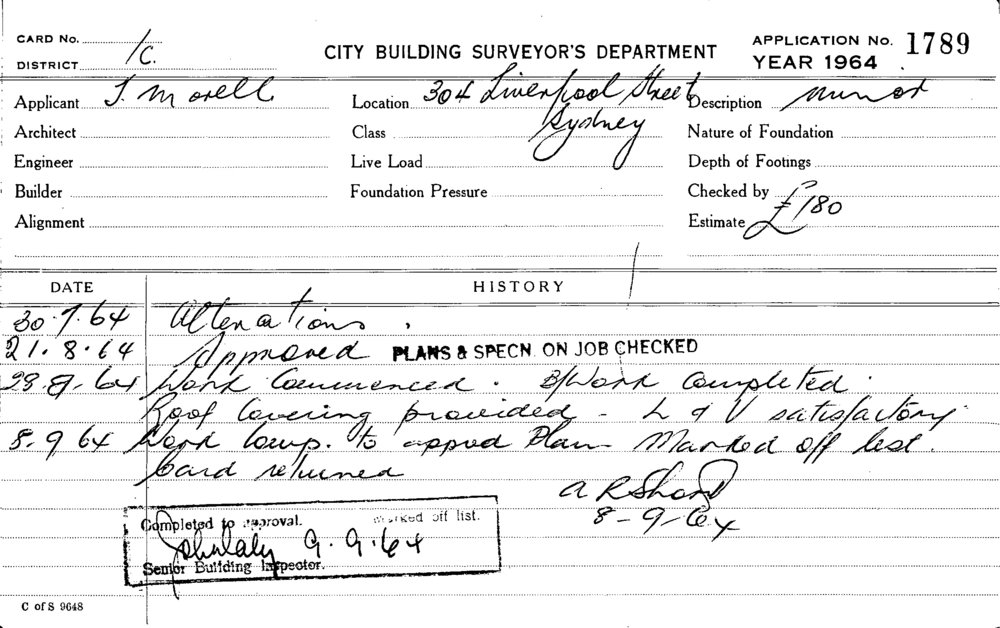 CARD No. 1C.
DISTRICT
CITY BUILDING SURVEYOR'S DEPARTMENT
APPLICATION No. 1789
YEAR 1964
Applicant J. Morell Location 304 Liverpool Street Description Minor
Sydney
Architect Class Nature of Foundation
Engineer Live Load Depth of Footings
Builder Foundation Pressure Checked by
Alignment Estimate £180
DATE HISTORY
30.7.64 Alterations.
21.8.64 Approved PLANS & SPECN. ON JOB CHECKED
28.8.64 Work Commenced. B/Work Completed.
Roof Covering provided - L & V satisfactory.
8.9.64 Work Comp. to approd Plan Marked off list.
Card returned
A R Sharp
8-9-64
Completed to approval. marked off list.
John Daly 9.9.64
Senior Building Inspector.
C of S 9648